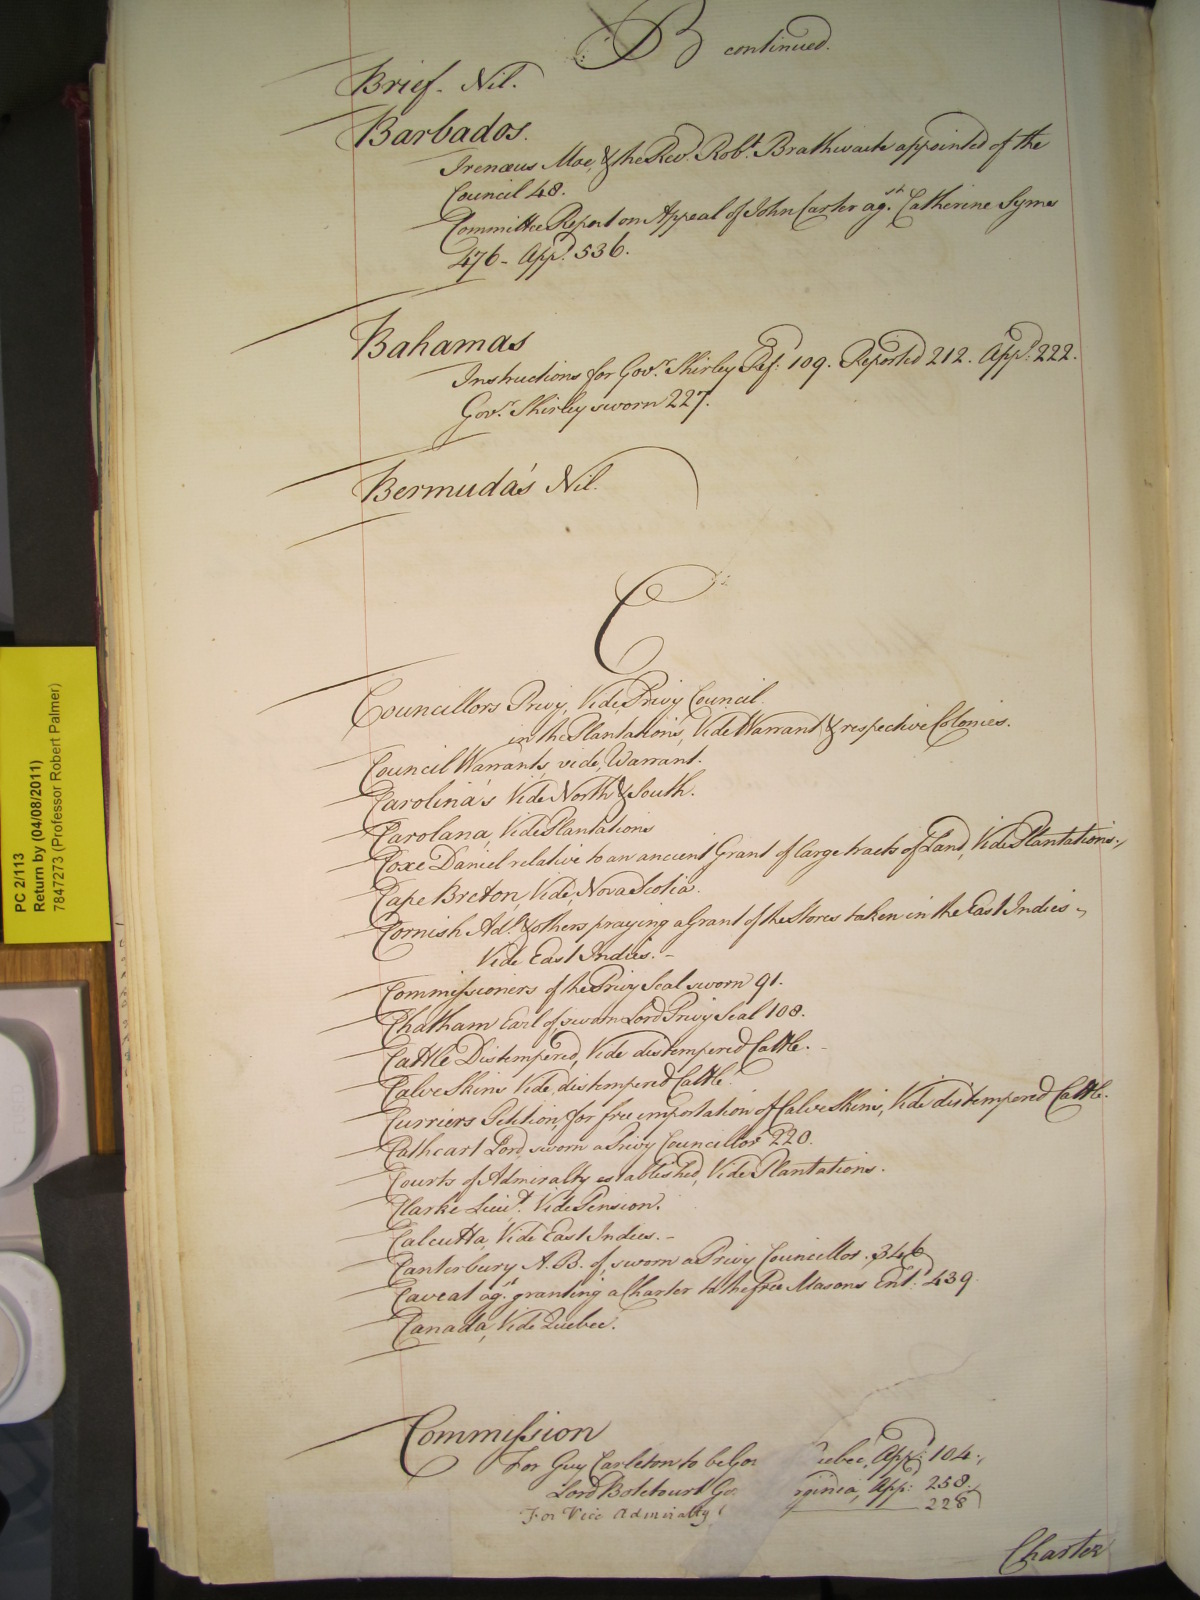 B continued.
Brief. Nil.
Barbados.
Irenæus Moe, & the Revd. Robt. Brathwaite appointed of the
Council 48.
Committee Report on Appeal of John Carter agst. Catherine Syms
476 - Appd. 536.
Bahamas
Instructions for Govr. Shirley Ref: 109. Reported 212. Appd: 222.
Govr. Shirley sworn 227.
Bermuda's Nil.
C
Councillors Privy, Vide, Privy Council.
in the Plantations, Vide Warrant & respective Colonies.
Council Warrants, vide, Warrant.
Carolina's Vide North & South.
Carolana, Vide Plantations
Coxe Daniel relative to an ancient Grant of large tracts of Land, Vide Plantations.
Cape Breton, Vide, Nova Scotia.
Cornish Adl. & others praying a Grant of the Stores taken in the East Indies -
Vide East Indies. -
Commissioners of the Privy Seal sworn 91.
Chatham Earl of, sworn Lord Privy Seal 108.
Cattle Distempered, Vide distempered Cattle. -
Calve Skins Vide, distempered Cattle.
Curriers Petition, for free importation of Calve Skins, Vide distempered Cattle.
Cathcart Lord, sworn a Privy Councillor 220.
Courts of Admiralty established, Vide Plantations.
Clarke Lieut. Vide Pension.
Calcutta, Vide East Indies. -
Canterbury A. B. of, sworn a Privy Councillor. 346
Caveat agst. granting a Charter to the free Masons Entd. 439.
Canada, Vide Quebec.
Commission
For Guy Carleton to be Gov uebec, Appd: 104.
Lord Botetourt Go rginia, App: 258.
For Vice Admiralty 228
Charter
PC 2/113
Return by (04/08/2011)
7847273 (Professor Robert Palmer)